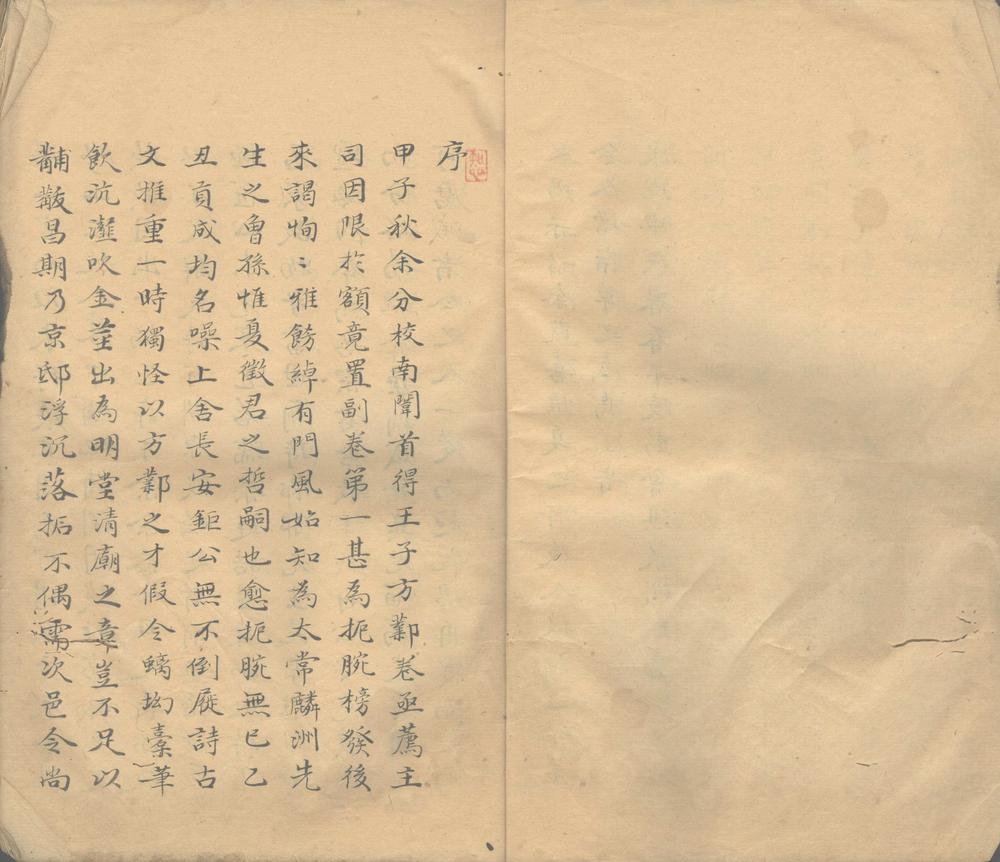 序
甲子秋余分校南闈首得王子方鄴卷亟薦主
司因限於額竟置副卷第一甚為扼腕榜發後
來謁恂〻雅飭綽有門風始知為太常麟洲先
生之曾孫惟夏徵君之哲嗣也愈扼腕無已乙
丑貢成均名噪上舍長安鉅公無不倒屣詩古
文推重一時獨怪以方鄴之才假令螭坳橐筆
飲沆瀣吹金莖出為明堂清廟之章豈不足以
黼黻昌期乃京邸浮沉落拓不偶需次邑令尚